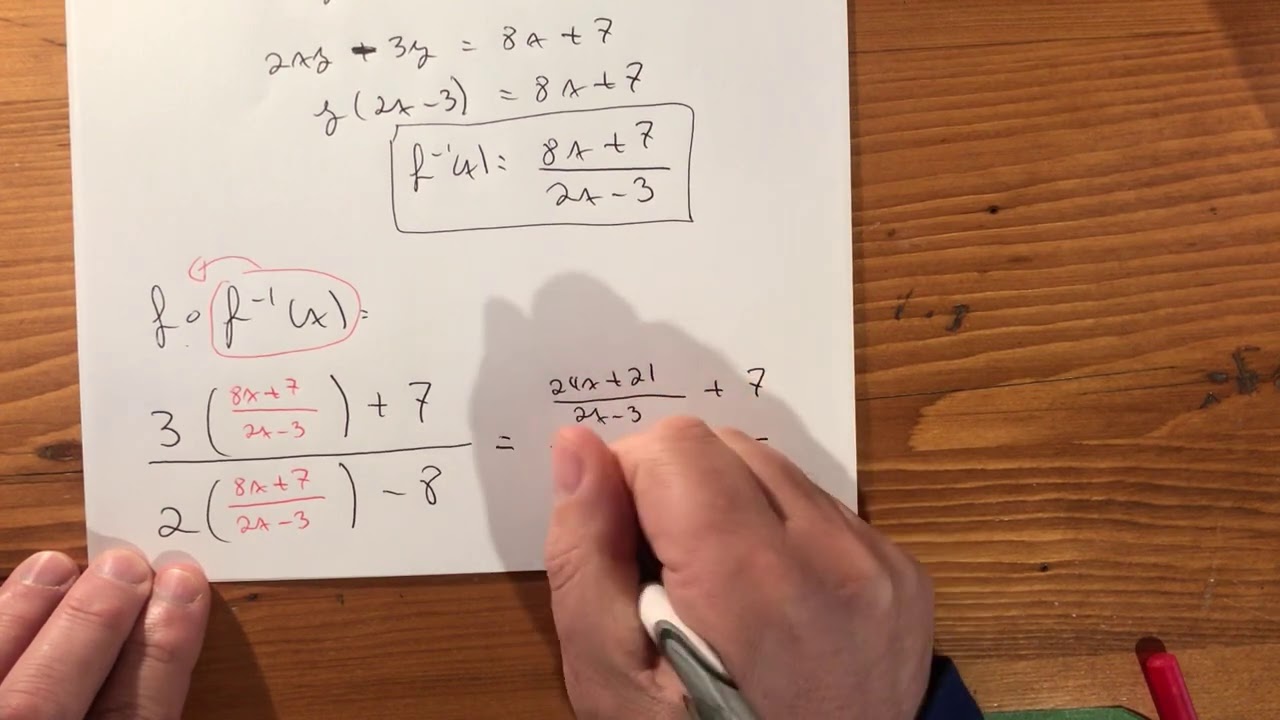 2xy - 3y = 8x + 7
y(2x - 3) = 8x + 7
f⁻¹(x) = (8x + 7)/(2x - 3)
f ∘ f⁻¹(x) =
(3((8x + 7)/(2x - 3)) + 7)/(2((8x + 7)/(2x - 3)) - 8) = (24x + 21)/(2x - 3) + 7